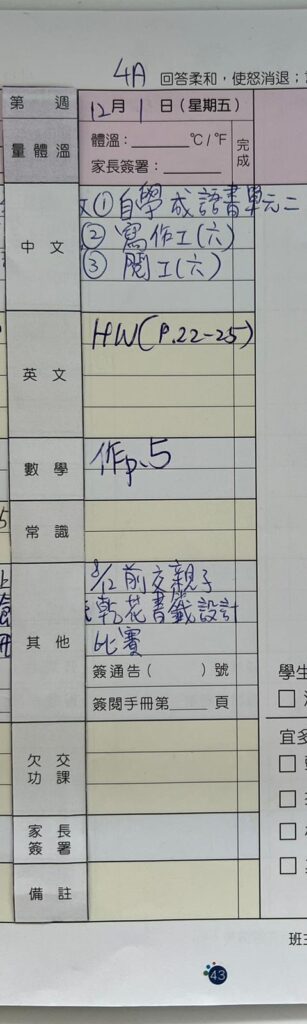 4A 回答柔和，使怒消退；
第 週 12月1日(星期五)
量體溫 體溫：______°C/°F 完成
家長簽署：______
中文 ①自學成語書單元二
②寫作工(六)
③閱工(六)
英文 HW(P.22-25)
數學 作p.5
常識
其他 8/12前交親子
乾花書籤設計
比賽
簽通告( )號
簽閱手冊第____頁
欠交功課
家長簽署
備註
學生
宜多
班主
43